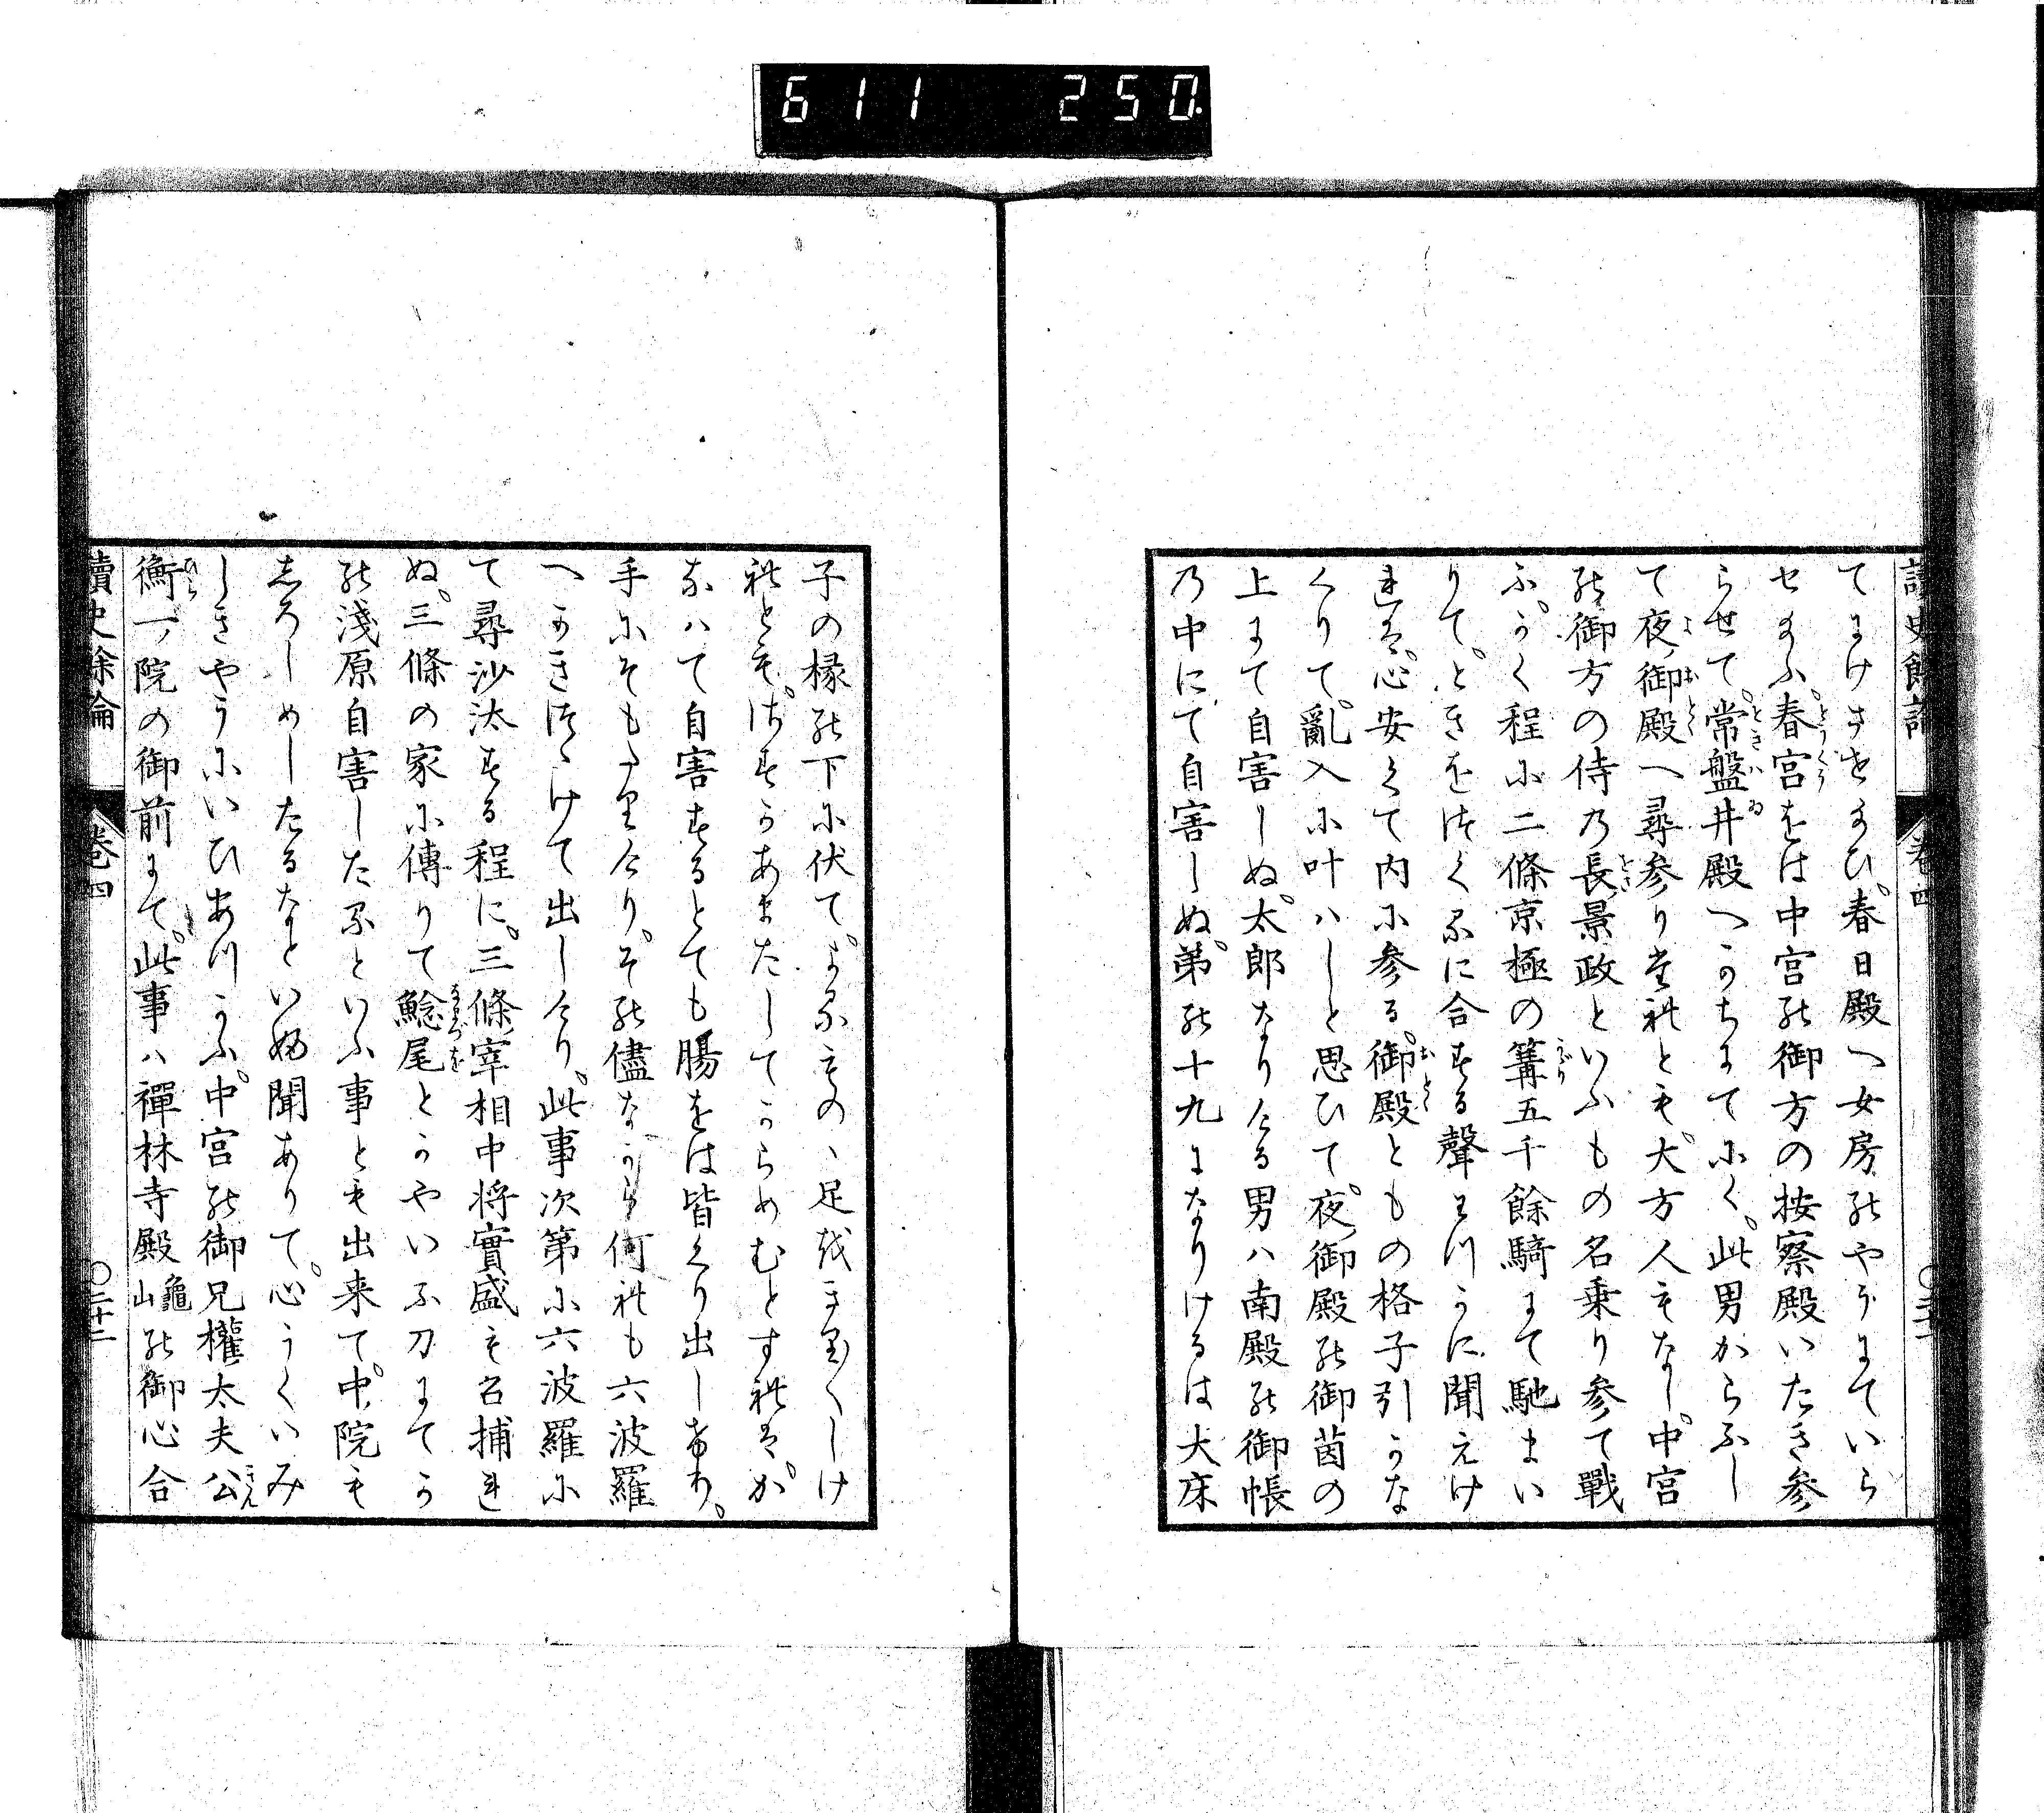 611 250
讀史餘論 卷四
てにけさせ給ひ。春日殿へ女房のやうにていら
せ給ふ。春宮をは中宮の御方の按察殿いたき参
らせて。常盤井殿へかちにてにく。此男からふし
て夜御殿へ尋参りたれとも。大方人もなし。中宮
の御方の侍の長景政といふもの名乗り参て戰
ふ。かく程に二條京極の篝五千餘騎にて馳まい
りて。ときをつくるに合する聲わつかに聞えけ
れは。心安くて内に参る。御殿ともの格子引かな
くりて。亂入に叶はしと思ひて。夜御殿の御茵の
上にて自害しぬ。太郎なりける男は南殿の御帳
の中にて自害しぬ。弟の十九になりけるは大床
子の縁の下に伏て。よるものゝ足をきり〳〵しけ
れとも。さすかあまたしてからめむとすれは。か
なはて自害するとても腸をは皆くり出して。
手にそもたりける。その儘なから何れも六波羅
へかきつゝけて出しけり。此事次第に六波羅に
て尋沙汰する程に。三條宰相中将實盛も召捕れ
ぬ。三條の家に傳りて鯰尾とかやいふ刀にてか
の淺原自害したるといふ事とも出来て。中院も
志ろしめしたるなといふ聞ありて。心うくいみ
しきやうにいひあつかふ。中宮の御兄權太夫公
衡一院の御前にて。此事は禪林寺殿龜山の御心合
讀史餘論 卷四 〇二十二